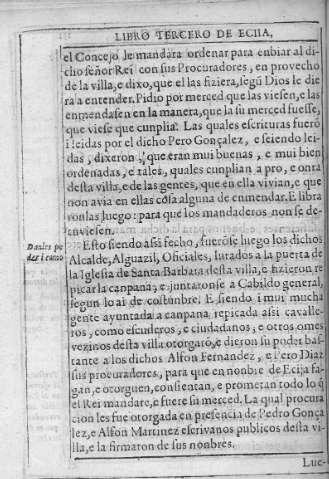 LIBRO TERCERO DE ECIIA,
el Concejo le mandara ordenar para enbiar al di
cho señor Rei con sus Procuradores, en provecho
de la villa, e dixo, que el las fiziera, segũ Dios le die
ra a entender. Pidio por merced que las viesen, e las
enmendasen en la manera, que la su merced fuesse,
que viese que cunplia. Las quales escrituras fuerõ
i leidas por el dicho Pero Gonçalez, e seiendo lei-
das, dixeron, que eran mui buenas, e mui bien
ordenadas, e tales, quales cunplian a pro, e onra
desta villa, e de las gentes, que en ella vivian, e que
non avia en ellas cosa alguna de enmendar. E libra
ronlas luego: para que los mandaderos non se de-
tuviesen.
Danles po
der i como
Esto siendo assi fecho, fuerõse luego los dichos
Alcalde, Alguazil, Oficiales, Iurados a la puerta de
la Iglesia de Santa Barbara desta villa, e fizieron re
picar la canpana, e juntaronse a Cabildo general,
segun lo ai de costũnbre. E siendo i mui mucha
gente ayuntada a canpana repicada assi cavalle-
ros, como escuderos, e ciudadanos, e otros omes
vezinos desta villa otorgarõ, e dieron su poder bas-
tante a los dichos Alfon Fernandez, e Pero Diaz
sus procuradores, para que en nonbre de Ecija fa-
gan, e otorguen, consientan, e prometan todo lo q̃
el Rei mandare, e fuere su merced. La qual procura
cion les fue otorgada en presencia de Pedro Gonça
lez, e Alfon Martinez escrivanos publicos desta vi-
lla, e la firmaron de sus nonbres.
Lue-